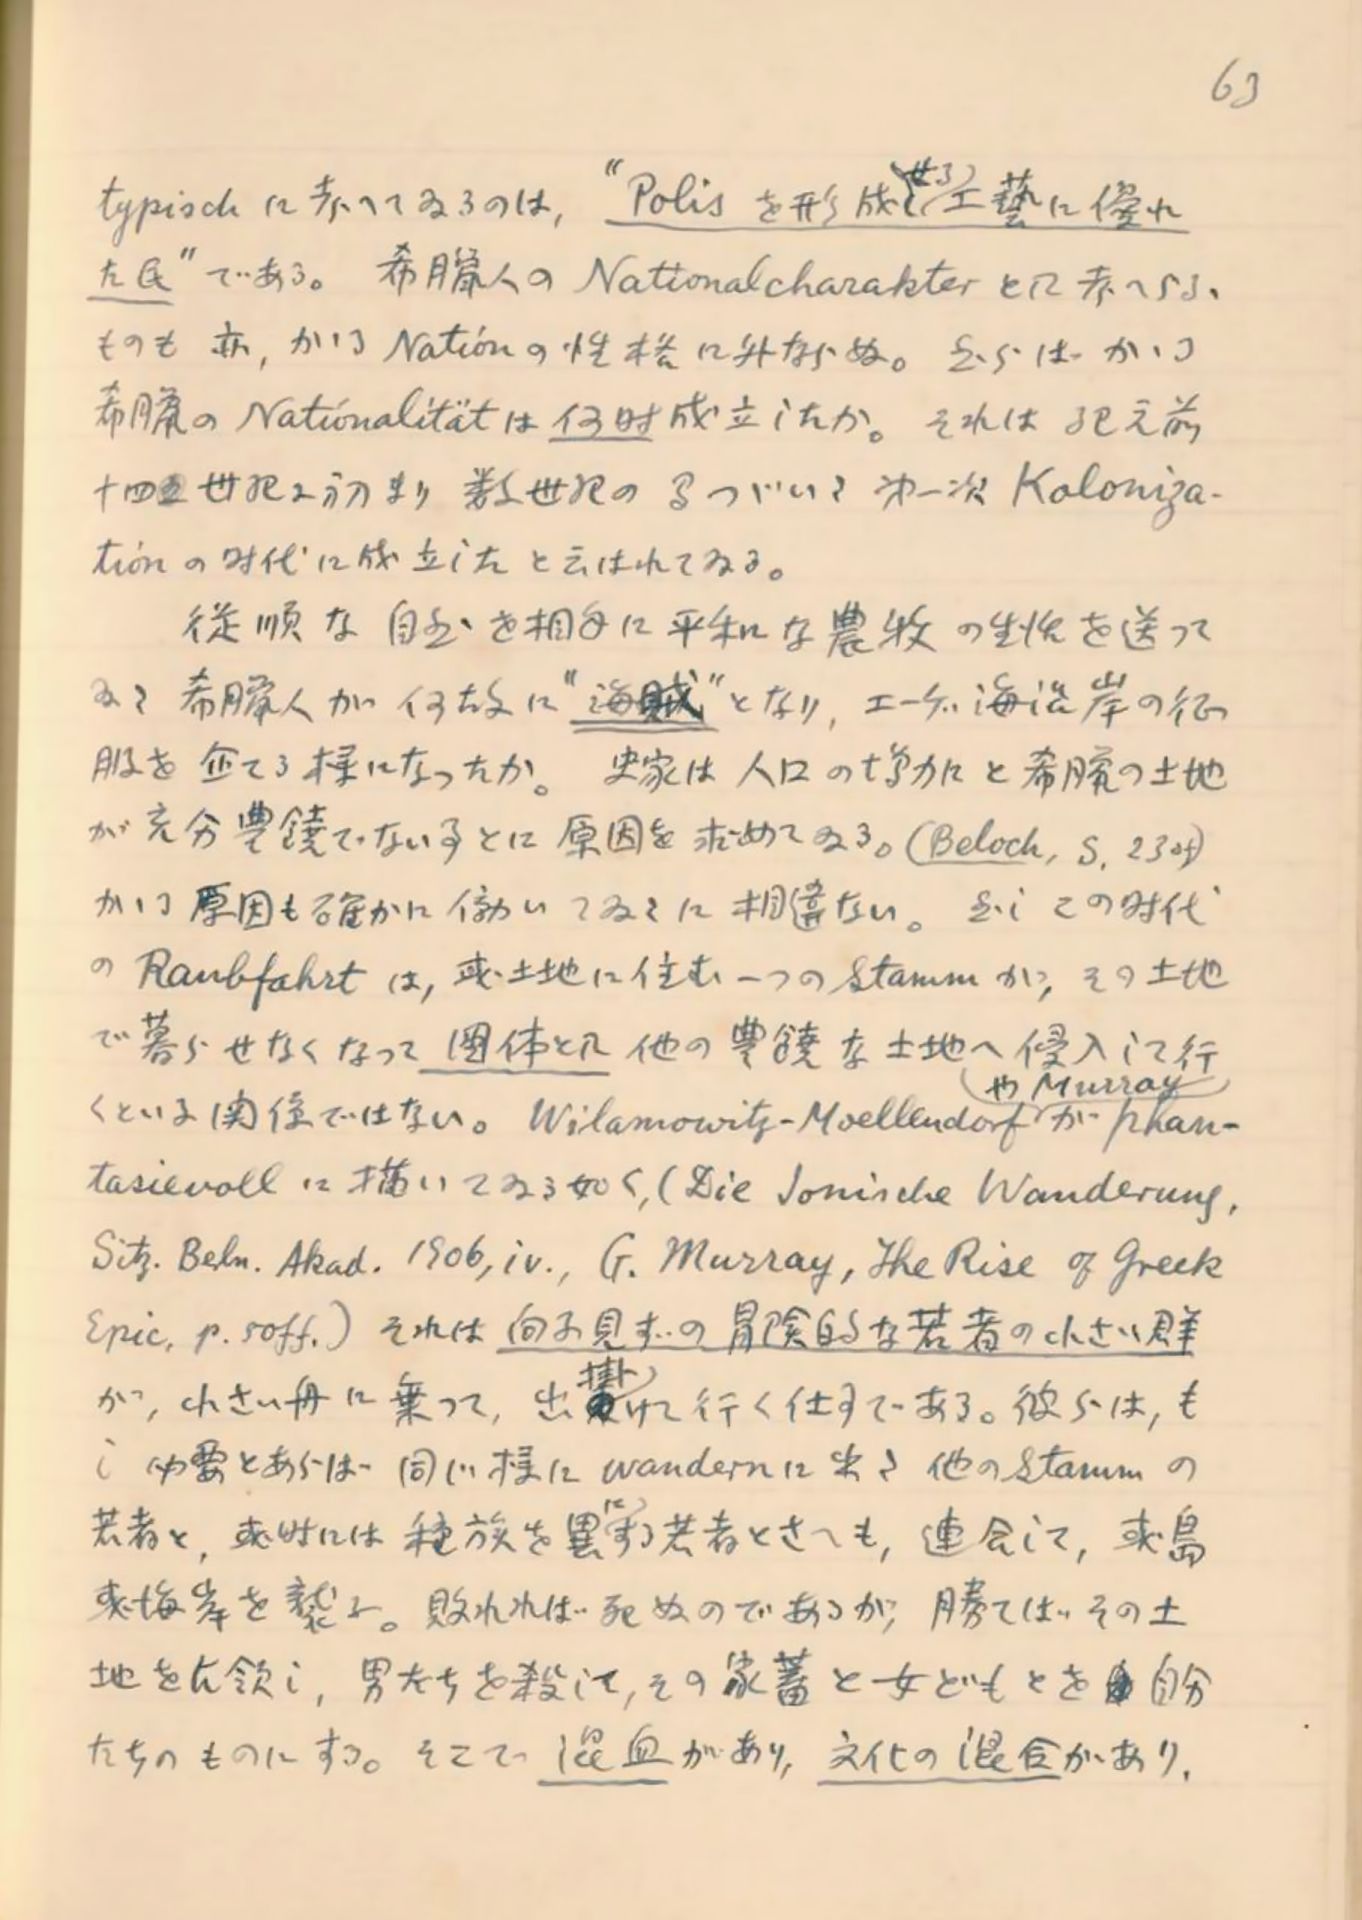 63
typisch に考へてゐるのは, “Polis を形成せる工藝に優れ
た民”である。 希臘人の Nationalcharakter として考へらるゝ
ものも亦, かゝる Nation の性格に外ならぬ。 然らば かゝる
希臘の Nationalität は何时成立したか。 それは紀元前
十四世紀に初まり 数世紀の間つゞいた 第一次 Koloniza-
tion の时代に成立した と云はれてゐる。
従順な自然を相手に平和な農牧の生活を送って
ゐた希臘人が何故に“海賊”となり, エーゲ海沿岸の征
服を企てる様になったか。 史家は人口の増加と希臘の土地
が充分豊饒でない事とに原因を求めてゐる。(Beloch, S. 230f)
かゝる原因も確かに働いてゐたに相違ない。 然しこの时代
の Raubfahrt は, 或土地に住む一つの Stamm が, その土地
で暮らせなくなって団体として他の豊饒な土地へ侵入して行
くといふ関係ではない。 Wilamowitz-Moellendorf や Murray が phan-
tasievoll に描いてゐる如く, (Die Ionische Wanderung,
Sitz. Berln. Akad. 1906, iv., G. Murray, The Rise of Greek
Epic, p. 50ff.) それは向ふ見ずの冒険的な若者の小さい群
が, 小さい舟に乗って, 出掛けて行く仕事である。彼らは, も
し必要とあらば 同じ様に wandern に出た他の Stamm の
若者と, 或时には種族を異にする若者とさへも, 連合して, 或島
或海岸を襲ふ。敗れれば死ぬのであるが, 勝てばその土
地を占領し, 男たちを殺して, その家畜と女どもとを自分
たちのものにする。そこで混血があり, 文化の混合があり,